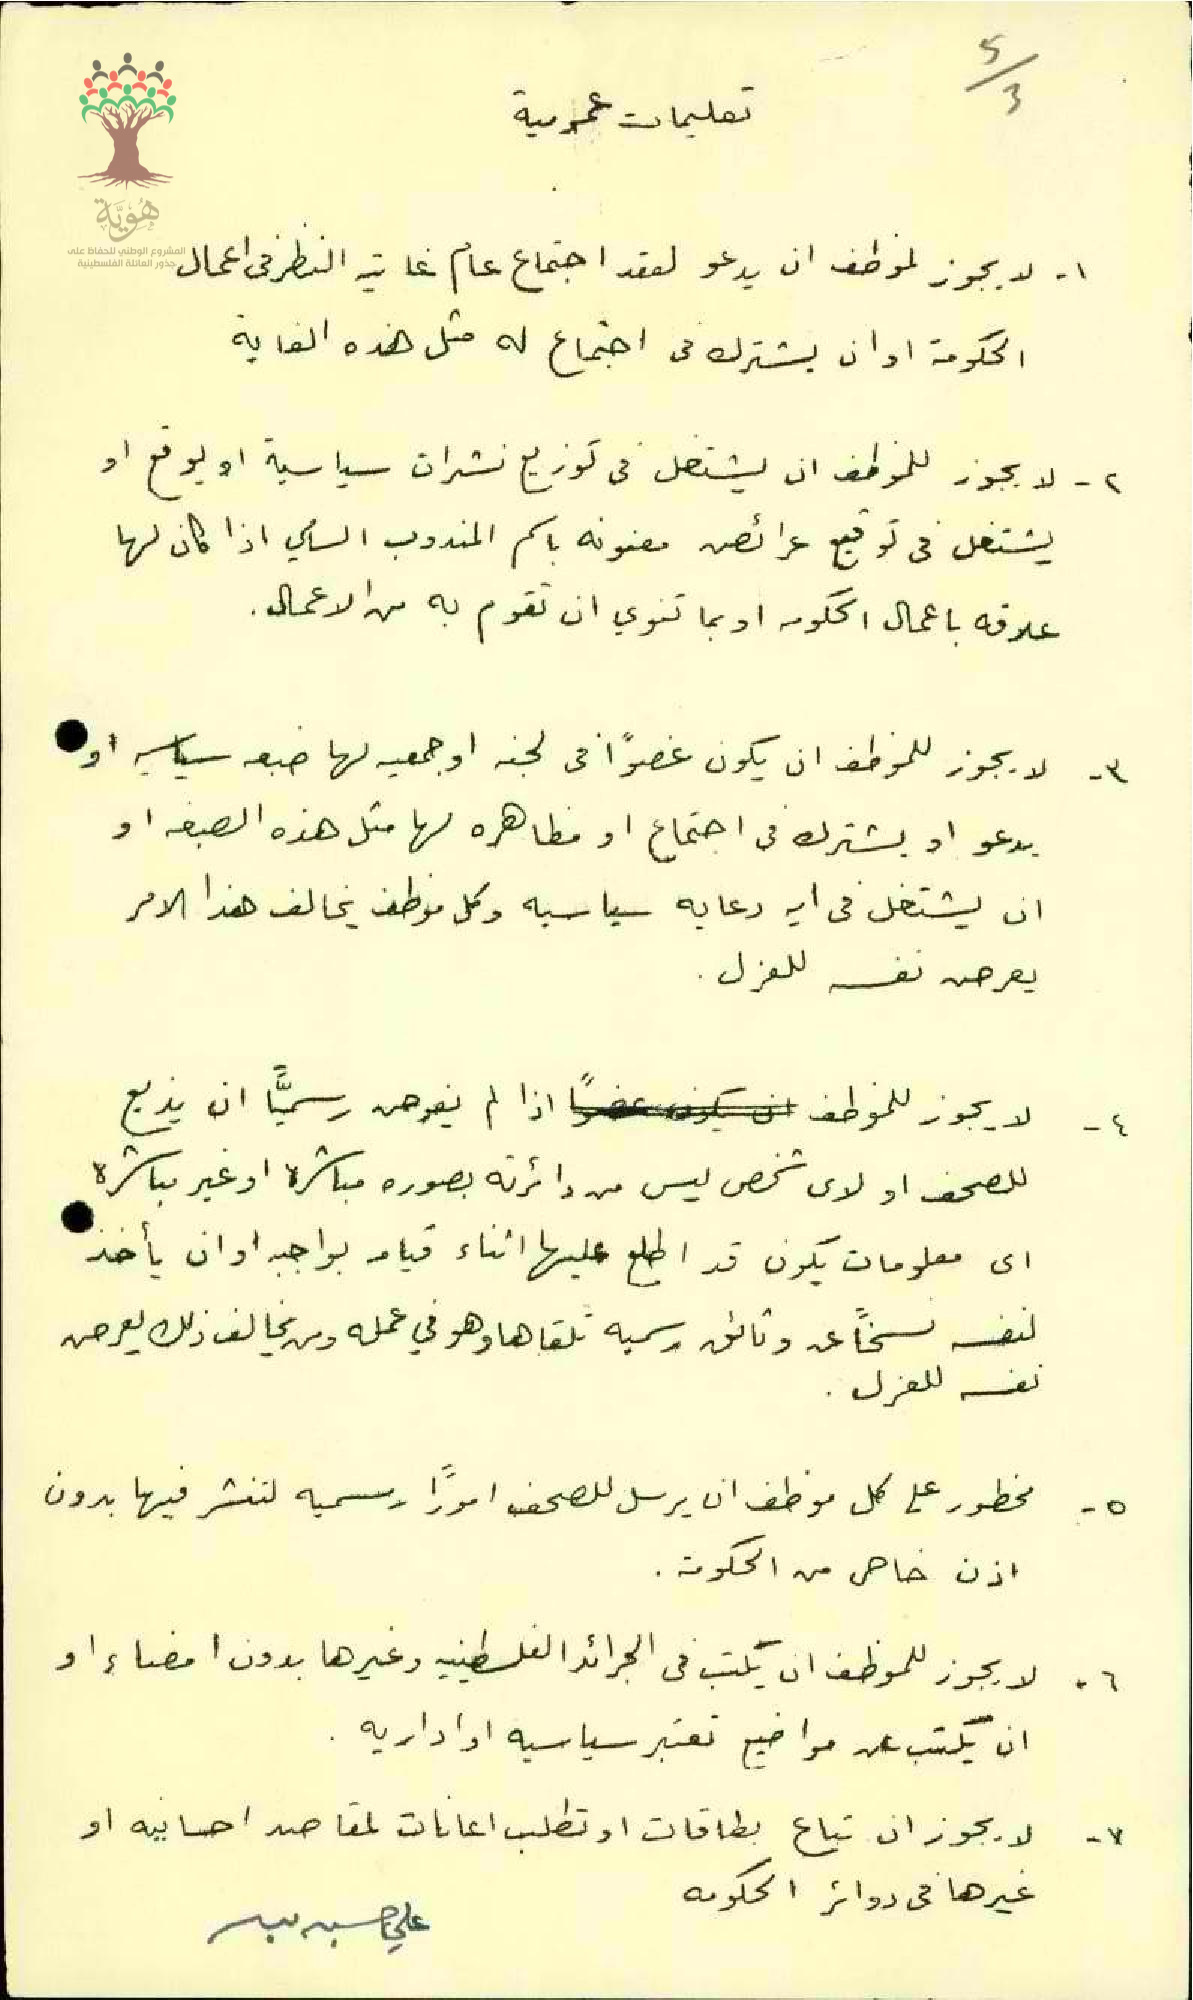 5/3
تعليمات عمومية
هوية
المشروع الوطني للحفاظ على
جذور العائلة الفلسطينية
١- لا يجوز لموظف ان يدعو لعقد اجتماع عام غايته النظر في اعمال
الحكومة او ان يشترك في اجتماع له مثل هذه الغاية
٢- لا يجوز للموظف ان يشتغل في توزيع نشرات سياسية او يوقع او
يشتغل في توقيع عرائض معنونه باسم المندوب السامي اذا كان لها
علاقه باعمال الحكومه او بما تنوي ان تقوم به من الاعمال.
٣- لا يجوز للموظف ان يكون عضوًا في لجنه او جمعيه لها صبغه سياسيه او
يدعو او يشترك في اجتماع او مظاهره لها مثل هذه الصبغه او
ان يشتغل في ايه دعايه سياسيه وكل موظف يخالف هذا الامر
يعرض نفسه للعزل.
٤- لا يجوز للموظف ان يكون عضوًا اذا لم يفوض رسميًّا ان يذيع
للصحف او لاى شخص ليس من دائرته بصوره مباشرة او غير مباشرة
اى معلومات يكون قد اطلع عليها اثناء قيامه بواجبه او ان يأخذ
لنفسه نسخًا عن وثائق رسميه تلقاها وهو في عمله ومن يخالف ذلك يعرض
نفسه للعزل.
٥- محظور على كل موظف ان يرسل للصحف امورًا رسميه لتنشر فيها بدون
اذن خاص من الحكومة.
٦- لا يجوز للموظف ان يكتب في الجرائد الفلسطينيه وغيرها بدون امضاء او
ان يكتب عن مواضيع تعتبر سياسيه او اداريه.
٧- لا يجوز ان تباع بطاقات او تطلب اعانات لمقاصد احسانيه او
غيرها في دوائر الحكومه
علي حسين